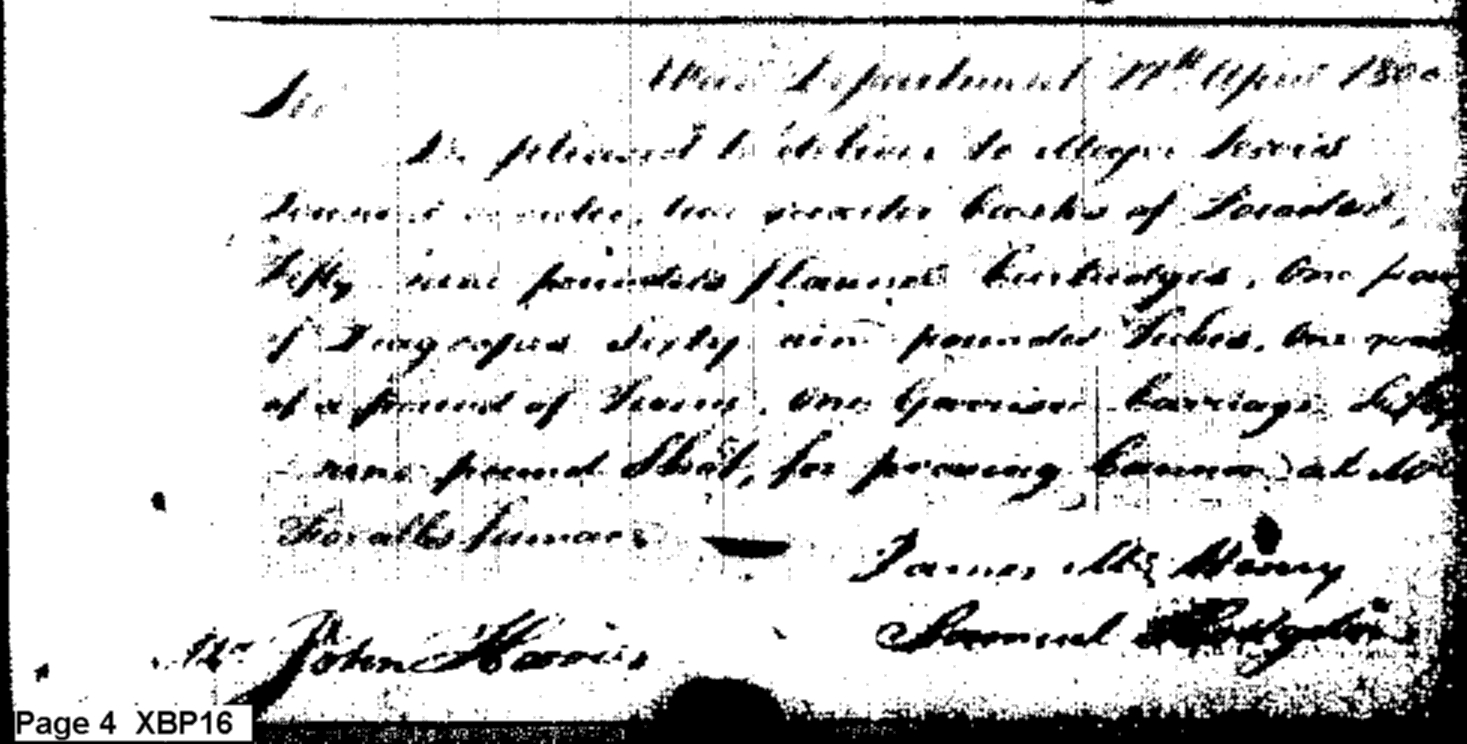 War Department 17th April 1800
Sir
Be pleased to deliver to Major Lewis
Tousard order, two quarter Casks of Powder,
Fifty nine pounders flannel Cartridges, One pou
of Dragropes sixty nine pounder Tubes, One quar
of a pound of Twine, One Garrison Carriage Fifty
nine pound Shot, for proving Cannon at Mr
Foxalls furnace
James McHenry
Samuel Hodgdon
Mr John Harris
Page 4 XBP16